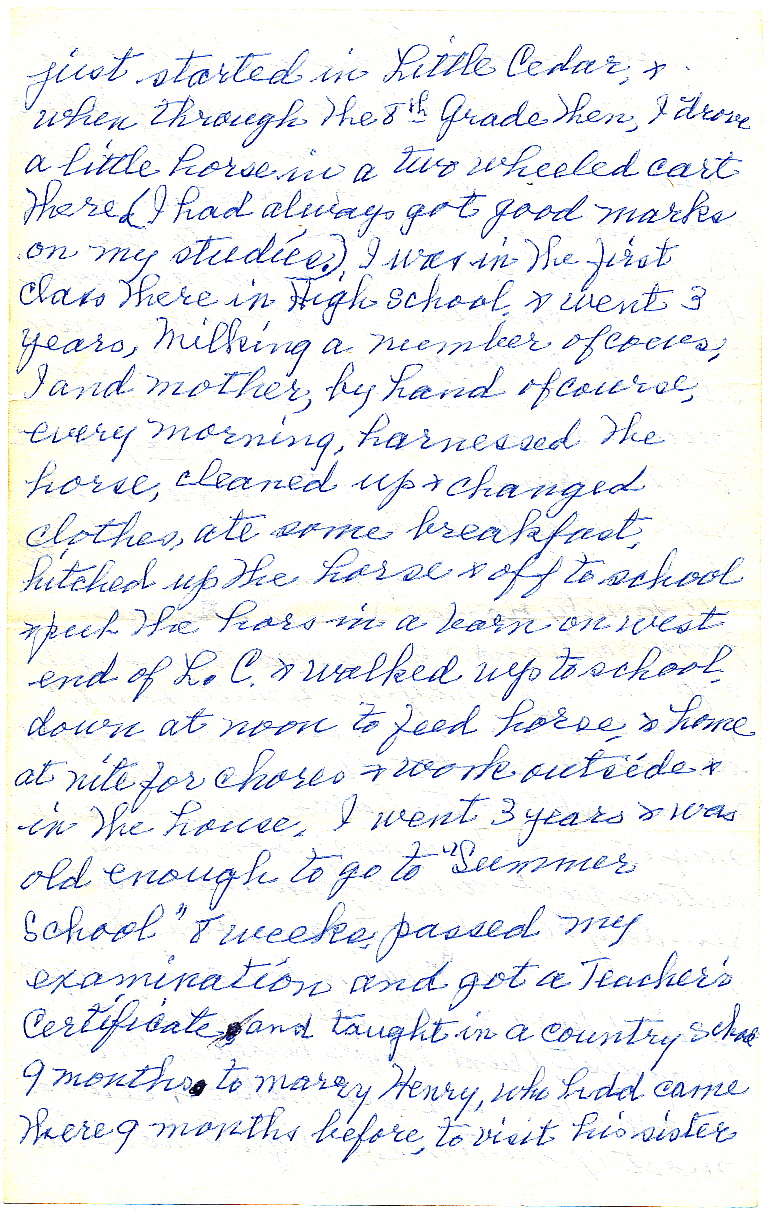 just started in Little Cedar, &
when through the 8th Grade then, I drove
a little horse in a two wheeled cart
there (I had always got good marks
on my studies.) I was in the first
class there in High School, & went 3
years, Milking a number of cows,
I and mother, by hand of course,
every morning, harnessed the
horse, cleaned up & changed
clothes, ate some breakfast,
hitched up the horse & off to school
& put the hors in a barn on west
end of L. C. & walked up to school,
down at noon to feed horse, & home
at nite for chores & work outside &
in the house. I went 3 years & was
old enough to go to "Summer
School" 8 weeks, passed my
examination and got a Teacher's
Certificate, and taught in a country school
9 months, to marry Henry, who hdd came
there 9 months before, to visit his sister